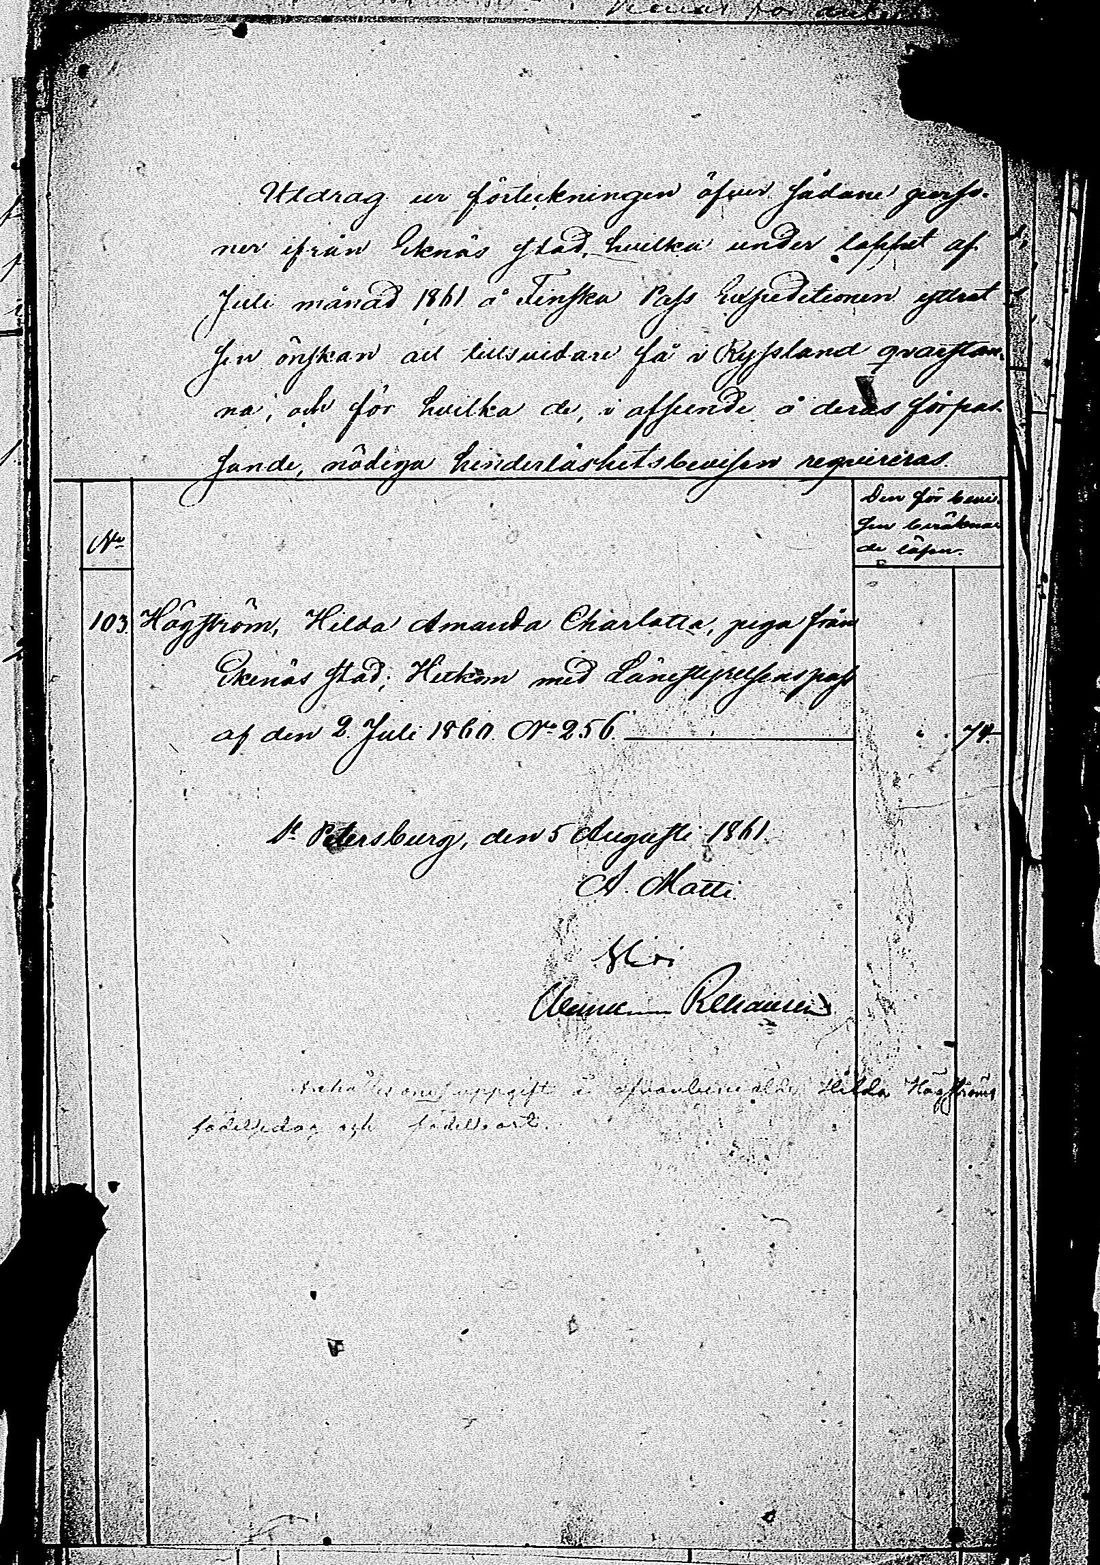 Utdrag ur förteckningen öfver sådane perso-
ner ifrån Eknäs stad, hvilka under loppet af
Juli månad 1861 å Finska Pass Expeditionen yttrat
sin önskan att tillsvidare få i Ryssland qvarstan-
na, och för hvilka de, i afseende å deras förpas-
sande, nödiga hinderlöshetsbevisen requireras.
Den för bevi-
sen beräkna-
de lösen.
No
103. Högström, Hilda Amanda Charlotta, piga från
Ekenäs stad; Hitkom med Länestyrelsens pass
af den 2 Juli 1860. No 256. 74
St Petersburg, den 5 Augusti 1861.
A. Matti.
uppgift å Hilda Högströms
födelsedag och födelseort.